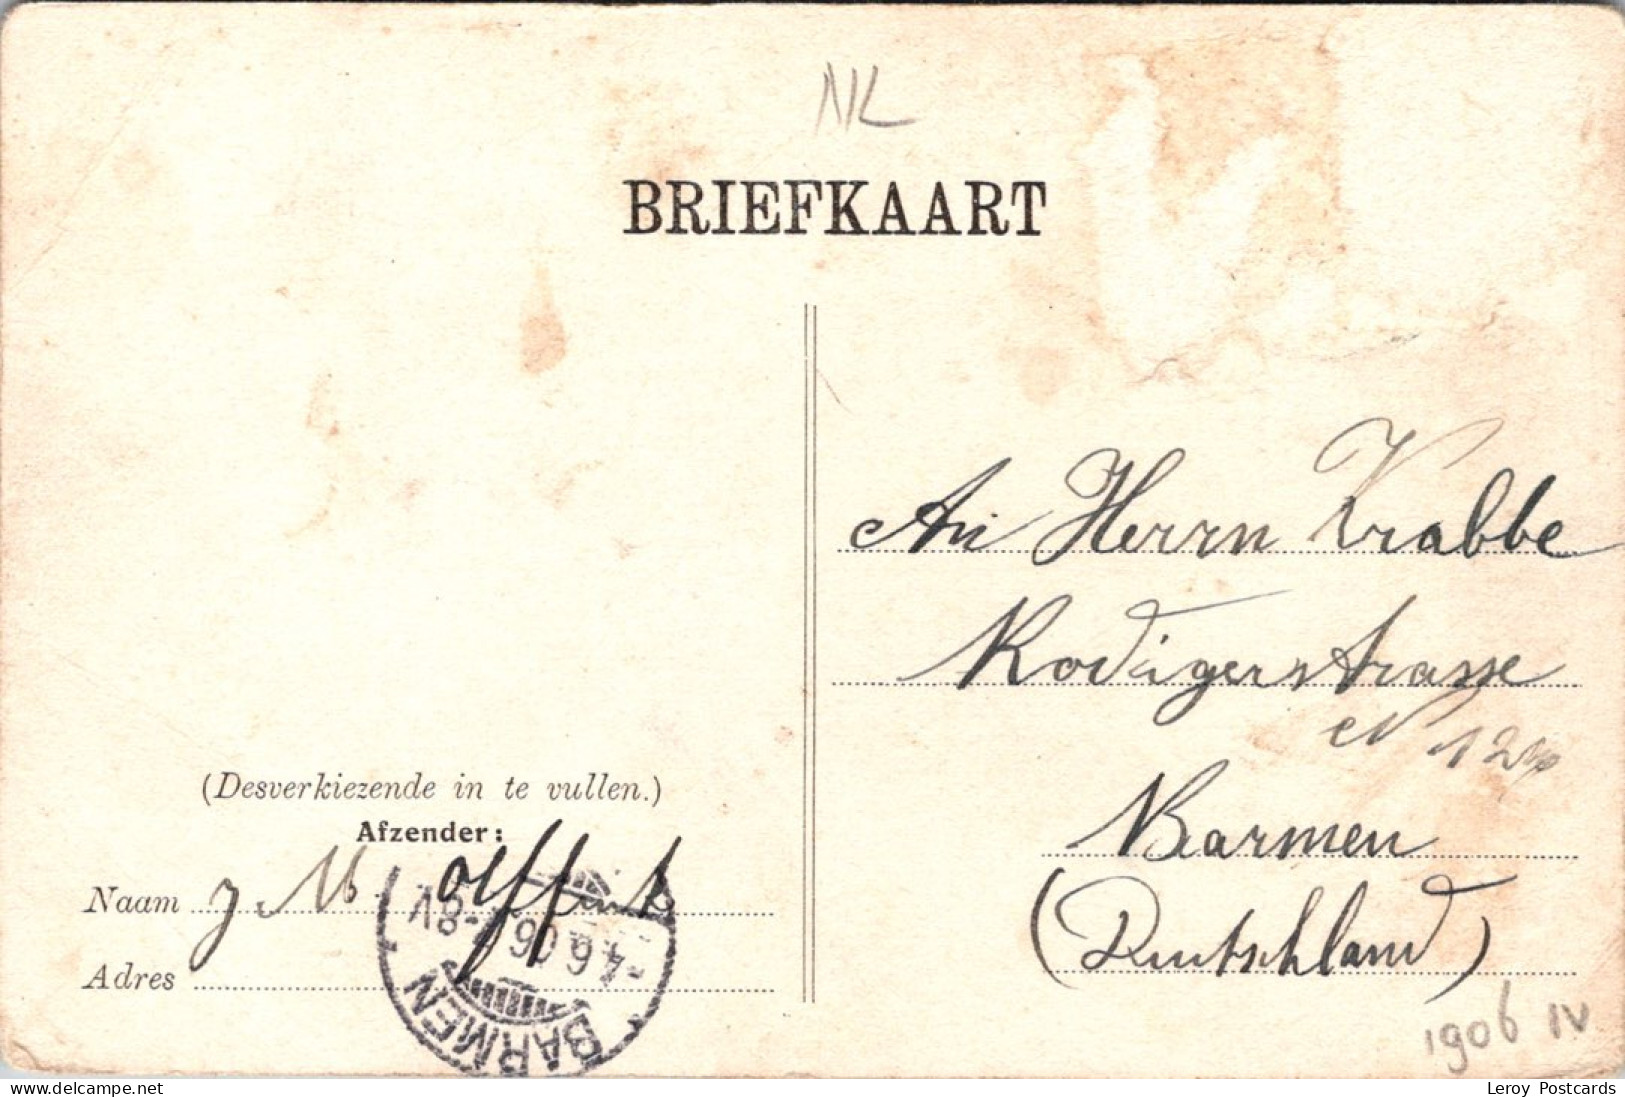 NL
BRIEFKAART
An Herrn Krabbe
Rodigerstrasse
N 124
Barmen
(Deutschland)
(Desverkiezende in te vullen.)
Afzender:
Naam J. M.
Adres
BARMEN
4 6 06 7-8V
1906 IV
Leroy Postcards